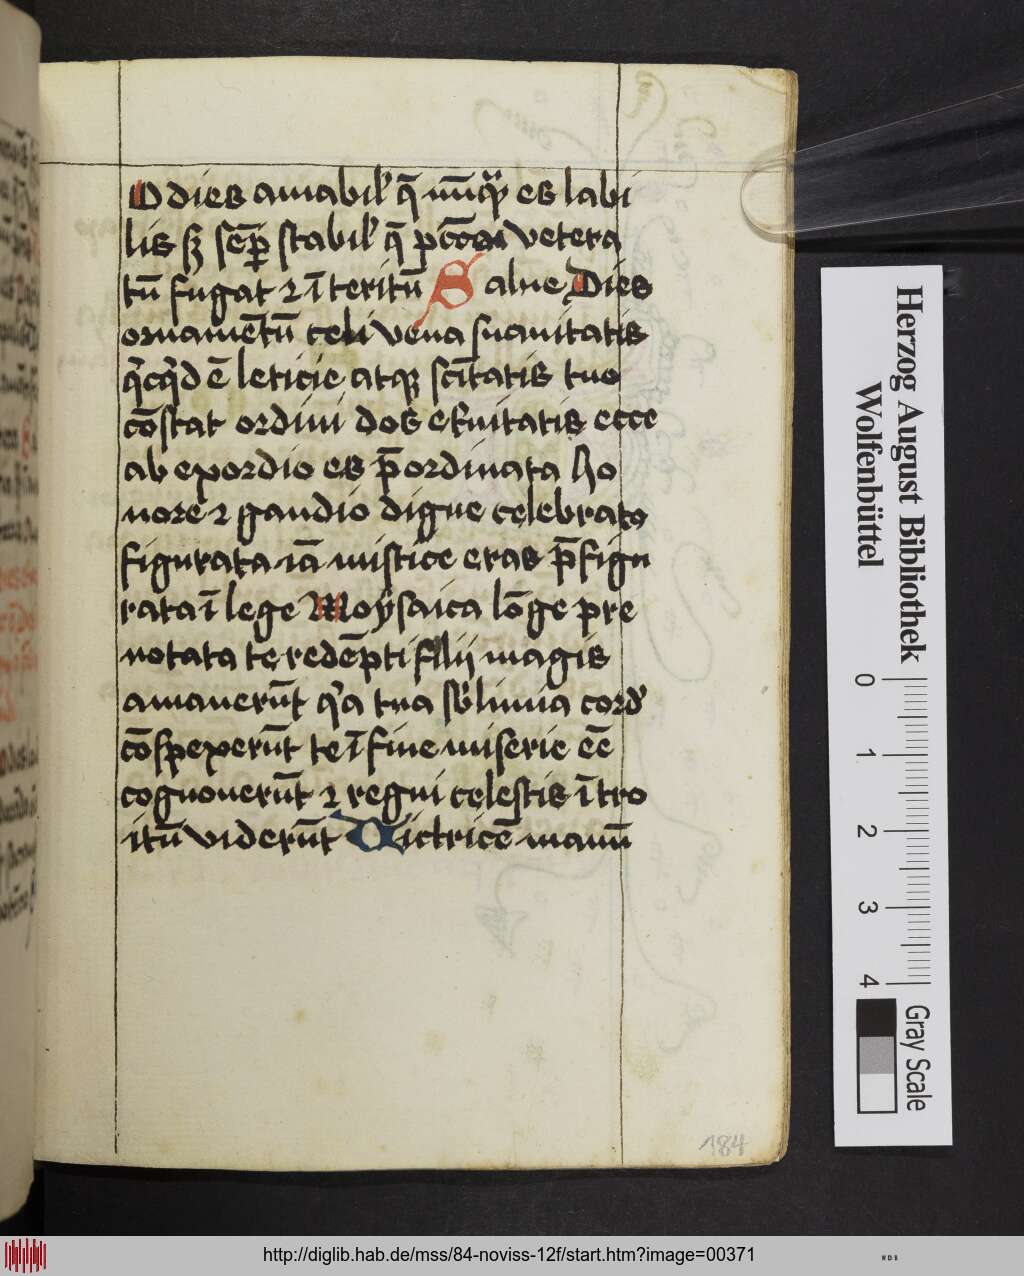 O dies amabil' q̄ nūqͣ es labi
lis sꝫ sēꝑ stabil' q̄ pctōꝝ vetera
tū fugat ⁊ īteritū Salue Dies
ornamētū celi vena suauitatis
qͥcqͥd ē leticie atqꝫ sctītatis tuo
cōstat ordini dos ekuitatis ecce
ab exordio es p̄ordinata ho
nore ⁊ gaudio digne celebrata
figurata iā mistice eras p̄figu
rata ī lege Moÿsaica lōge pre
notata te redēpti filij magis
amauerūt qͥa tua sblimia cord'
cōspexerūt te ī fine miserie eē
cognouerūt ⁊ regni celestis ītro
itū viderūt Victricē manū
184
Herzog August Bibliothek
Wolfenbüttel
0 1 2 3 4
Gray Scale
http://diglib.hab.de/mss/84-noviss-12f/start.htm?image=00371